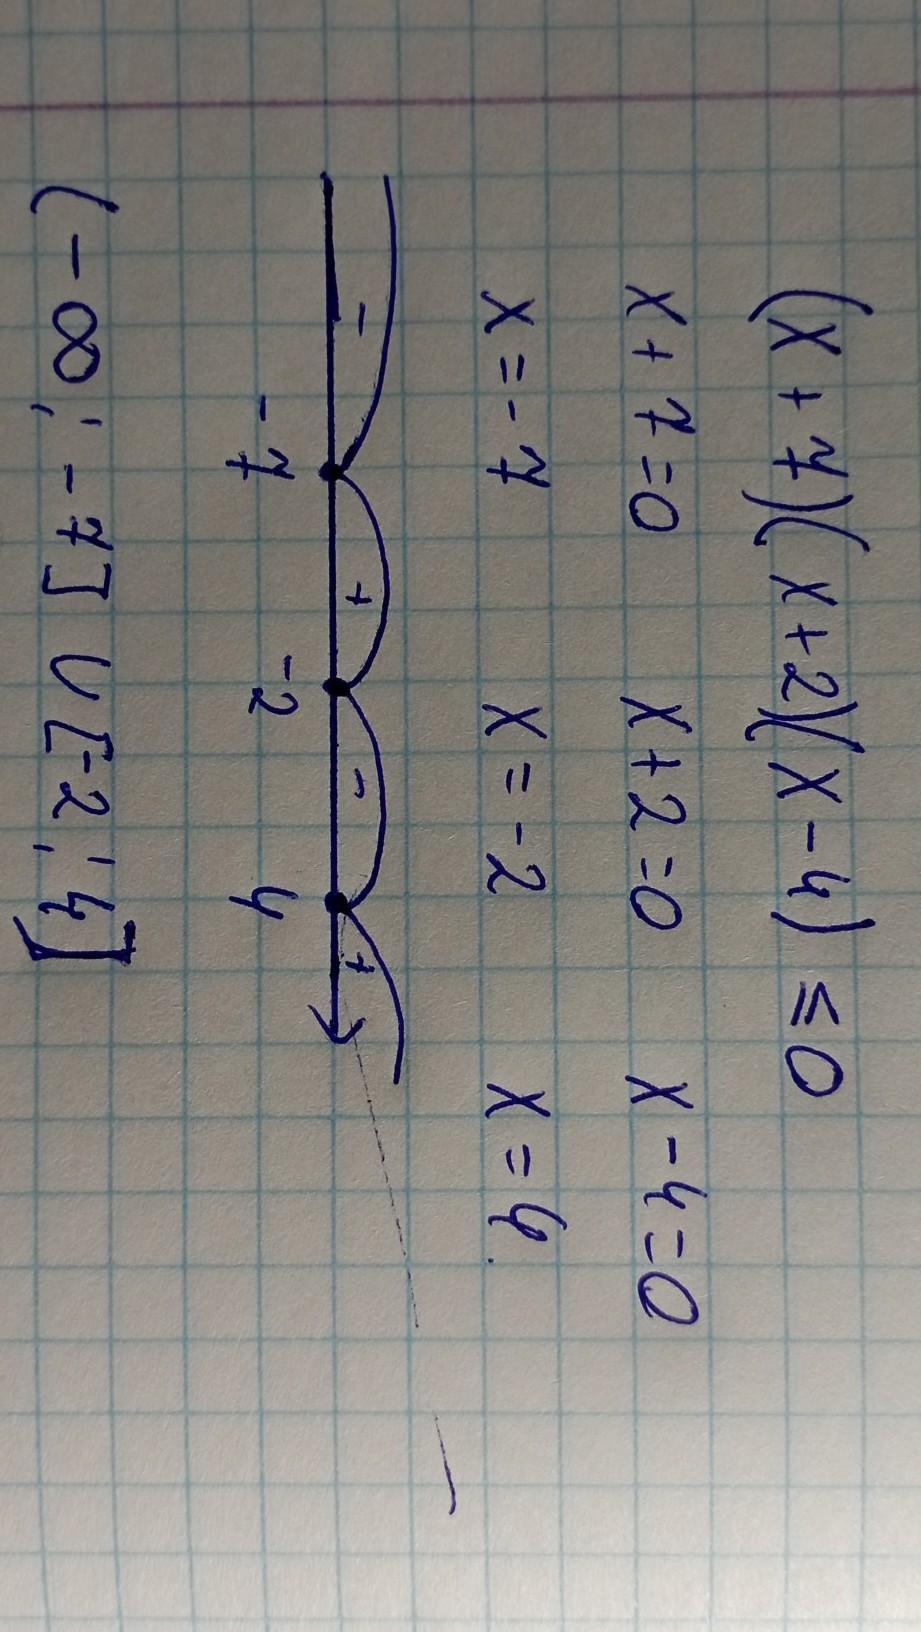 (x+7)(x+2)(x-4) ≤ 0
x+7=0 x+2=0 x-4=0
x=-7 x=-2 x=4
- + - +
-7 -2 4
(-∞; -7] ∪ [-2; 4]